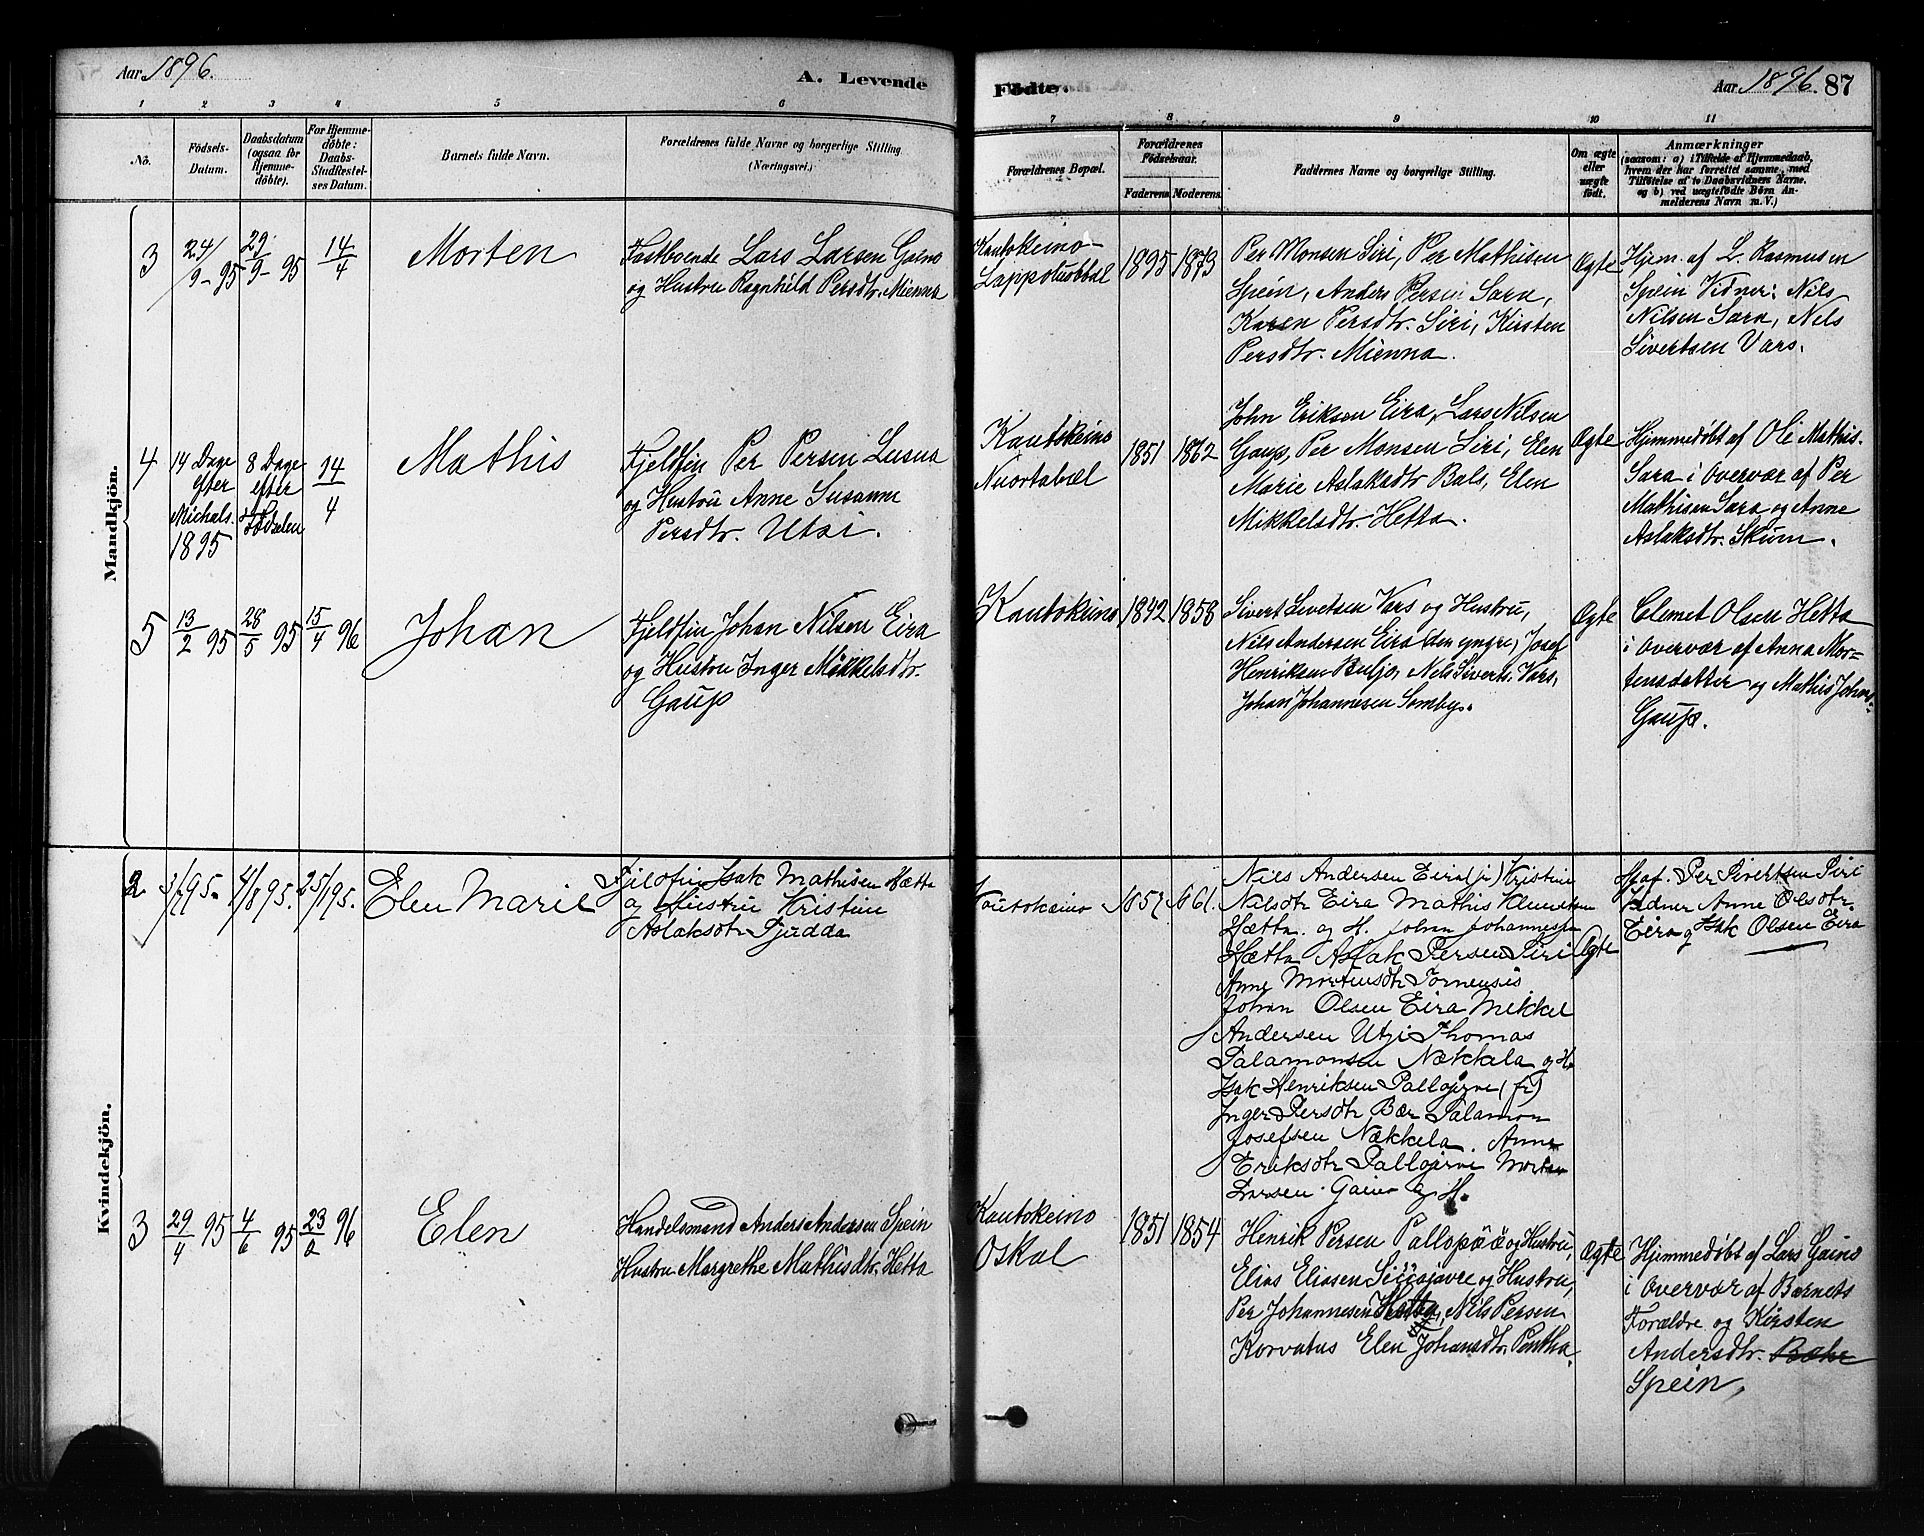 Aar 1896.
A. Levende
Fødte.
Aar 1896. 87
1 2 3 4 5 6
7 8 9 10 11
Nö. Födsels-Datum. Daabsdatum (ogsaa for Hjemmedöbte). For Hjemmedöbte: Daabs-Stadfæstelses Datum. Barnets fulde Navn. Forældrenes fulde Navne og borgerlige Stilling. (Næringsvei.)
Forældrenes Bopæl. Forældrenes Födselsaar. Faderens Moderens. Faddernes Navne og borgerlige Stilling. Om ægte eller uægte født.
Anmærkninger
(saasom: a) i Tilfælde af Hjemmedaab,
hvem der har forrettet samme, med
Tilføielse af to Daabsvidners Navne.
og b) ved uægtefödte Börn An-
melderens Navn m. V.)
Mandkjön.
3 24/9-95 29/9-95 14/4 Morten
Fastboende Lars Larsen Gaino
og Hustru Ragnhild Persdtr. Mienna
Kautokeino-
Lappoluobbal
1895 1873
Per Monsen Siri, Per Mathisen
Spein, Anders Persen Sara,
Karen Persdtr. Siri, Kirsten
Persdtr. Mienna.
Ægte
Hjem. af L. Rasmusen
Spein Vidner: Nils
Nilsen Sara, Nels
Sivertsen Vars.
4
14 Dage
efter
Michals.
1895
8 Dage
efter
Fødselen
14/4
Mathis
Fjeldfin Per Persen Lusua
og Hustru Anne Susanne
Persdtr. Utsi.
Kautokeino
Nuortabæl
1851 1862
John Eriksen Eira, Lars Nilsen
Gaup, Per Monsen Siri, Elen
Marie Aslaksdtr Bals, Elen
Mikkelsdtr. Hetta.
Ægte
Hjemmedøbt af Ole Mathis.
Sara i Overvær af Per
Mathisen Sara og Anne
Aslaksdtr. Skum.
5 13/2 95 28/5 95 15/4 96 Johan
Fjeldfin Johan Nilsen Eira
og Hustru Inger Mikkelsdtr.
Gaup
Kautokeino 1842 1858
Sivert Sivetsen Vars og Hustru,
Nils Andersen Eira (den yngre) Josef
Henriksen Buljo, Nels Siverts. Vars,
Johan Johannesen Somby.
Ægte
Clemet Olsen Hetta
i Overvær af Anna Mor=
tensdatter og Mathis Johns.
Gaup.
Kvindekjön.
2 3/7 95. 4/8 95. 25/1 95. Elen Marie
Fjeldfin Isak Mathisen Hætta
og Hustru Kristine
Aslaksdtr Sjudda
Koutokeino 1857 1861.
Nils Andersen Eira (jr) Kristine
Nilsdtr Eira Mathis Klemetsen
Hætta. og H. Johan Johannessen
Hætta Aslak Persen Siri
Anne Mortensdtr Tornensis
Johan Olsen Eira Mikkel
Andersen Utsi Thomas
Salamonsen Nækkala og H.
Isak Henriksen Pallojærve (jr)
Inger Persdtr Bær Salamon
Josefsen Nækkela. Anne
Eriksdtr Pallojærvi Morten
Larsen Gaino og H.
Ægte
Hj.af. Per Sivertsen Siri
Vidner Anne Olsdtr.
Eira og Isak Olsen Eira
3 29/4 95 4/6 95 23/2 96 Elen
Handelsmand Anders Andersen Spein
Hustru Margrethe Mathisdtr. Hetta
Kautokeino
Oskal
1851 1854
Henrik Persen Pallopää og Hustru,
Elias Eliasen Siiosjavre og Hustru,
Per Johannesen Hetta, Nils Persen
Korvatus Elen Johansdtr. Pentha.
Ægte
Hjemmedøbt af Lars Gaino
i Overvær af Barnets
Forældre og Kirsten
Andersdtr. Bæhr
Spein.